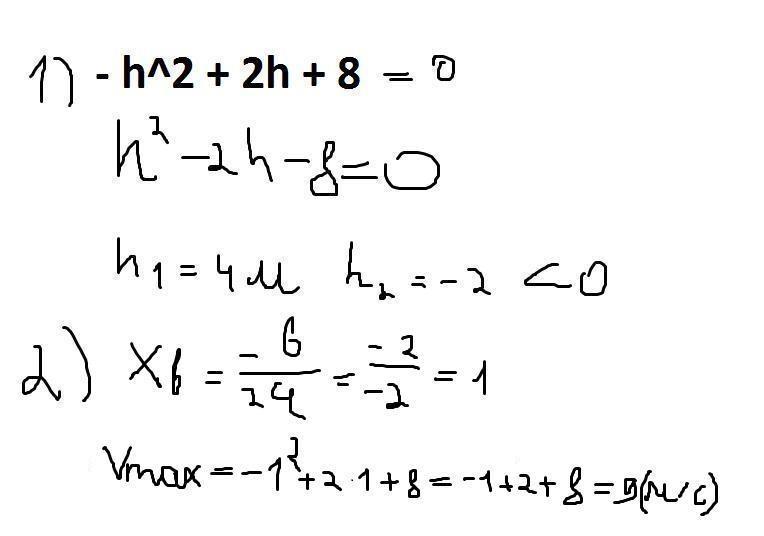 1) - h^2 + 2h + 8 = 0
h² - 2h - 8 = 0
h₁ = 4м h₂ = -2 < 0
2) Xв = -b/2a = -2/-2 = 1
Vmax = -1² + 2·1 + 8 = -1 + 2 + 8 = 9(м/с)